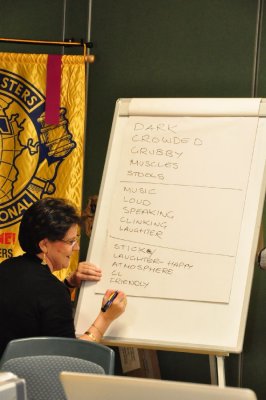 STERS
DARK
CROWDED
GRUBBY
MUSCLES
STOOLS
MUSIC
LOUD
SPEAKING
CLINKING
LAUGHTER
STICKY
LAUGHTER-HAPPY
ATMOSPHERE
CL
FRIENDLY